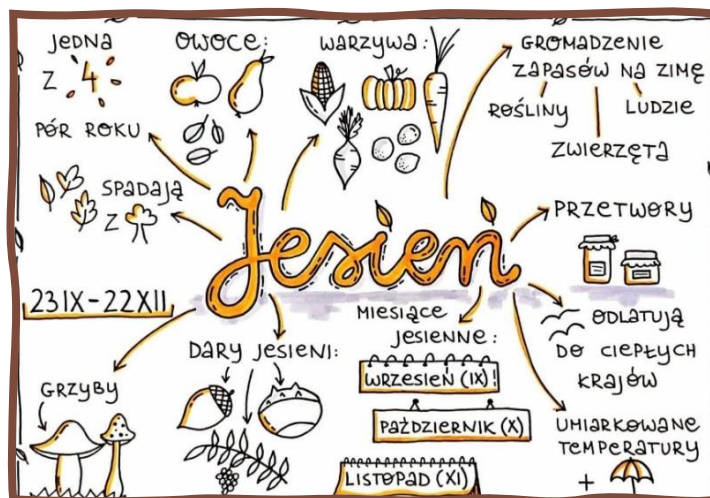 JEDNA
Z 4
PÓR ROKU
OWOCE:
WARZYWA:
GROMADZENIE
ZAPASÓW NA ZIMĘ
ROŚLINY
LUDZIE
ZWIERZĘTA
SPADAJĄ
Z
Jesień
PRZETWORY
23IX-22XII
DARY JESIENI:
MIESIĄCE
JESIENNE:
WRZESIEŃ (IX)
PAŹDZIERNIK (X)
LISTOPAD (XI)
ODLATUJĄ
DO CIEPŁYCH
KRAJÓW
GRZYBY
UMIARKOWANE
TEMPERATURY
+